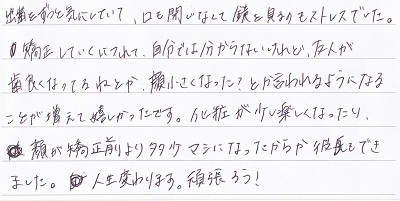 出歯をずっと気にしていて、口を開いなして鏡を見るのもストレスでした。
矯正していくにつれて、自分では分からないけれど、友人が
歯良くなってるねとか、顔小さくなった？とか言われるようになる
ことが増えて嬉しかったです。化粧が少し楽しくなったり、
顔が矯正前より多少マシになったからか彼氏もでき
ました。人生変わります。頑張ろう！